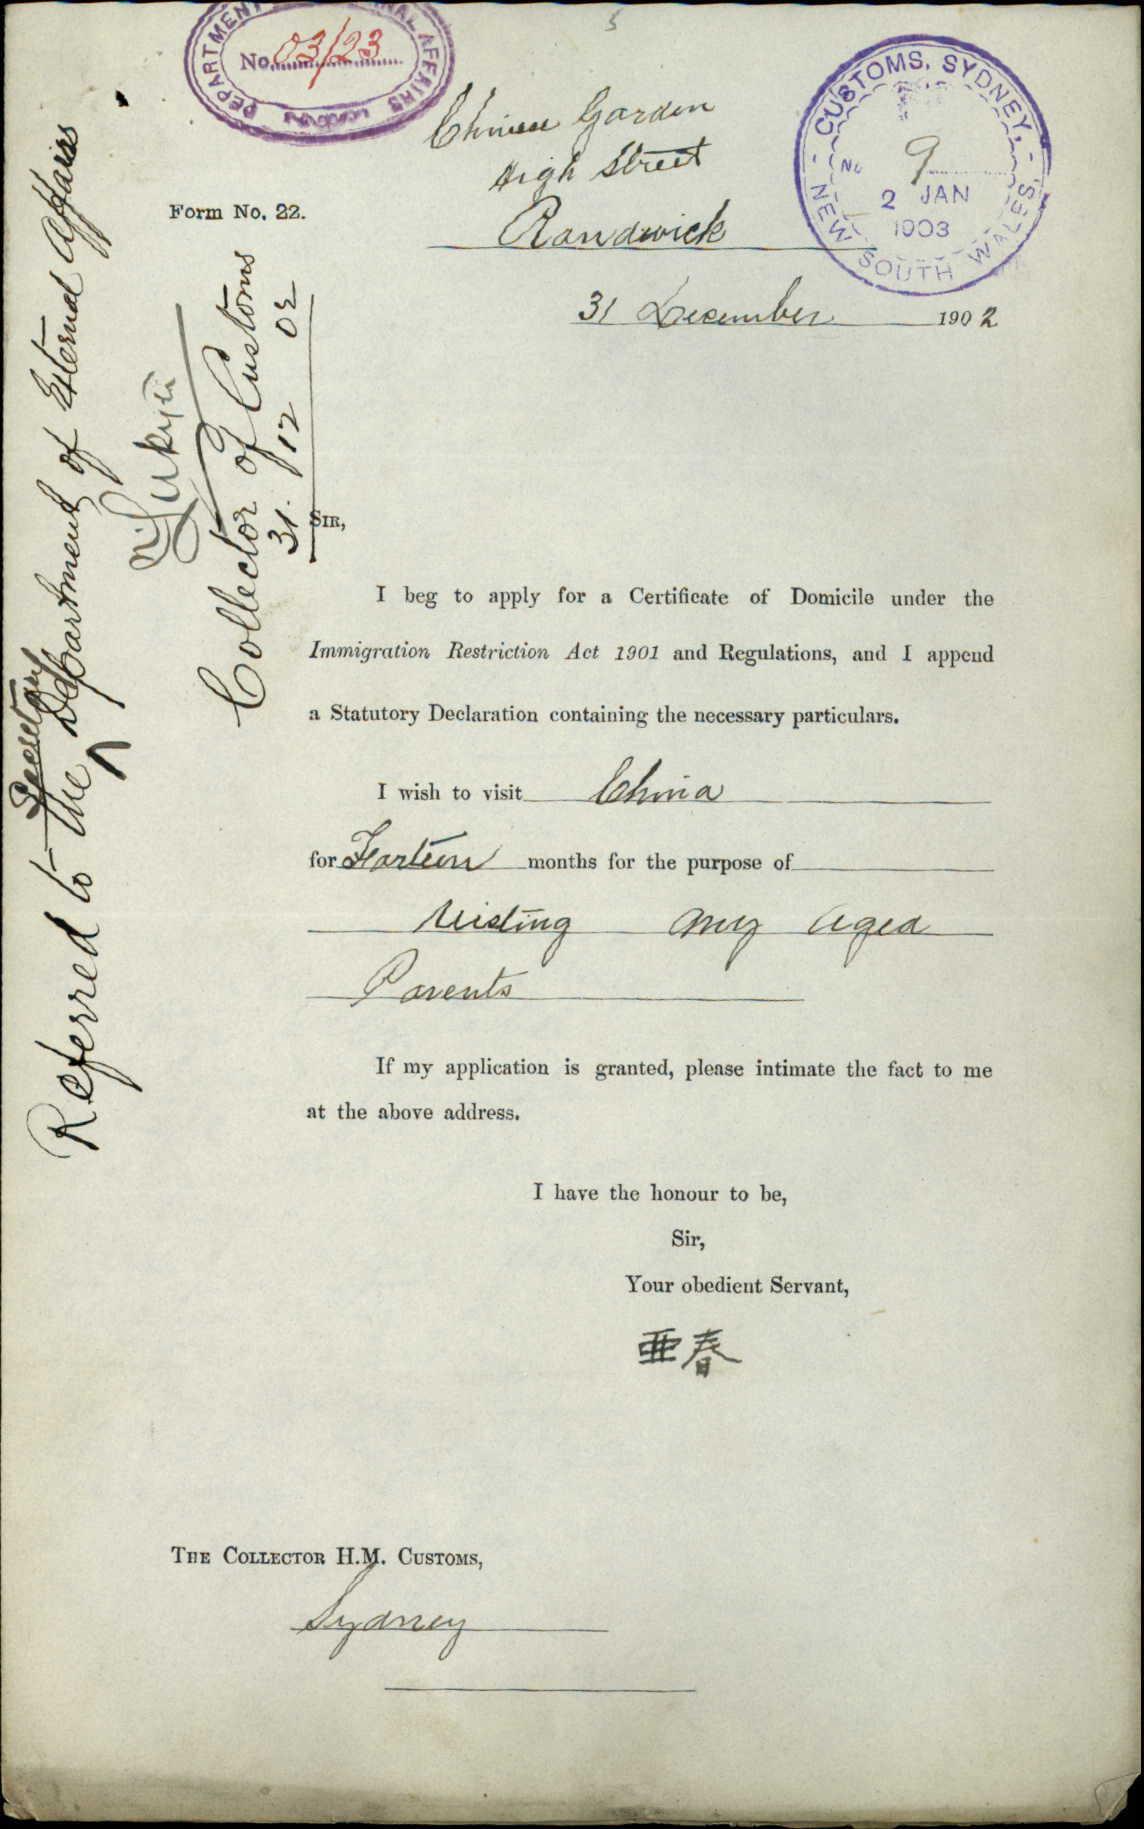 5
DEPARTMENT NAL AFFAIRS
No. 03/23
Chinese Garden
High Street
Randwick
CUSTOMS, SYDNEY,
No 9
2 JAN
1903
NEW SOUTH WALES
Form No. 22.
31 December 1902
Referred to the Secretary Department of External Affairs
Collector of Customs
31.12 02
SIR,
I beg to apply for a Certificate of Domicile under the
Immigration Restriction Act 1901 and Regulations, and I append
a Statutory Declaration containing the necessary particulars.
I wish to visit China
for Forteen months for the purpose of
Visting my aged
Parents
If my application is granted, please intimate the fact to me
at the above address.
I have the honour to be,
Sir,
Your obedient Servant,
亜春
THE COLLECTOR H.M. CUSTOMS,
Sydney